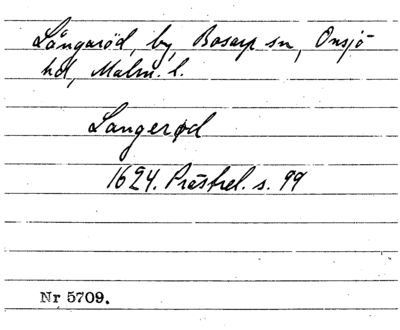 Långaröd, by, Bosarp sn, Onsjö
hd, Malm. l.
Langerød
1624. Prästrel. s. 99
Nr 5709.